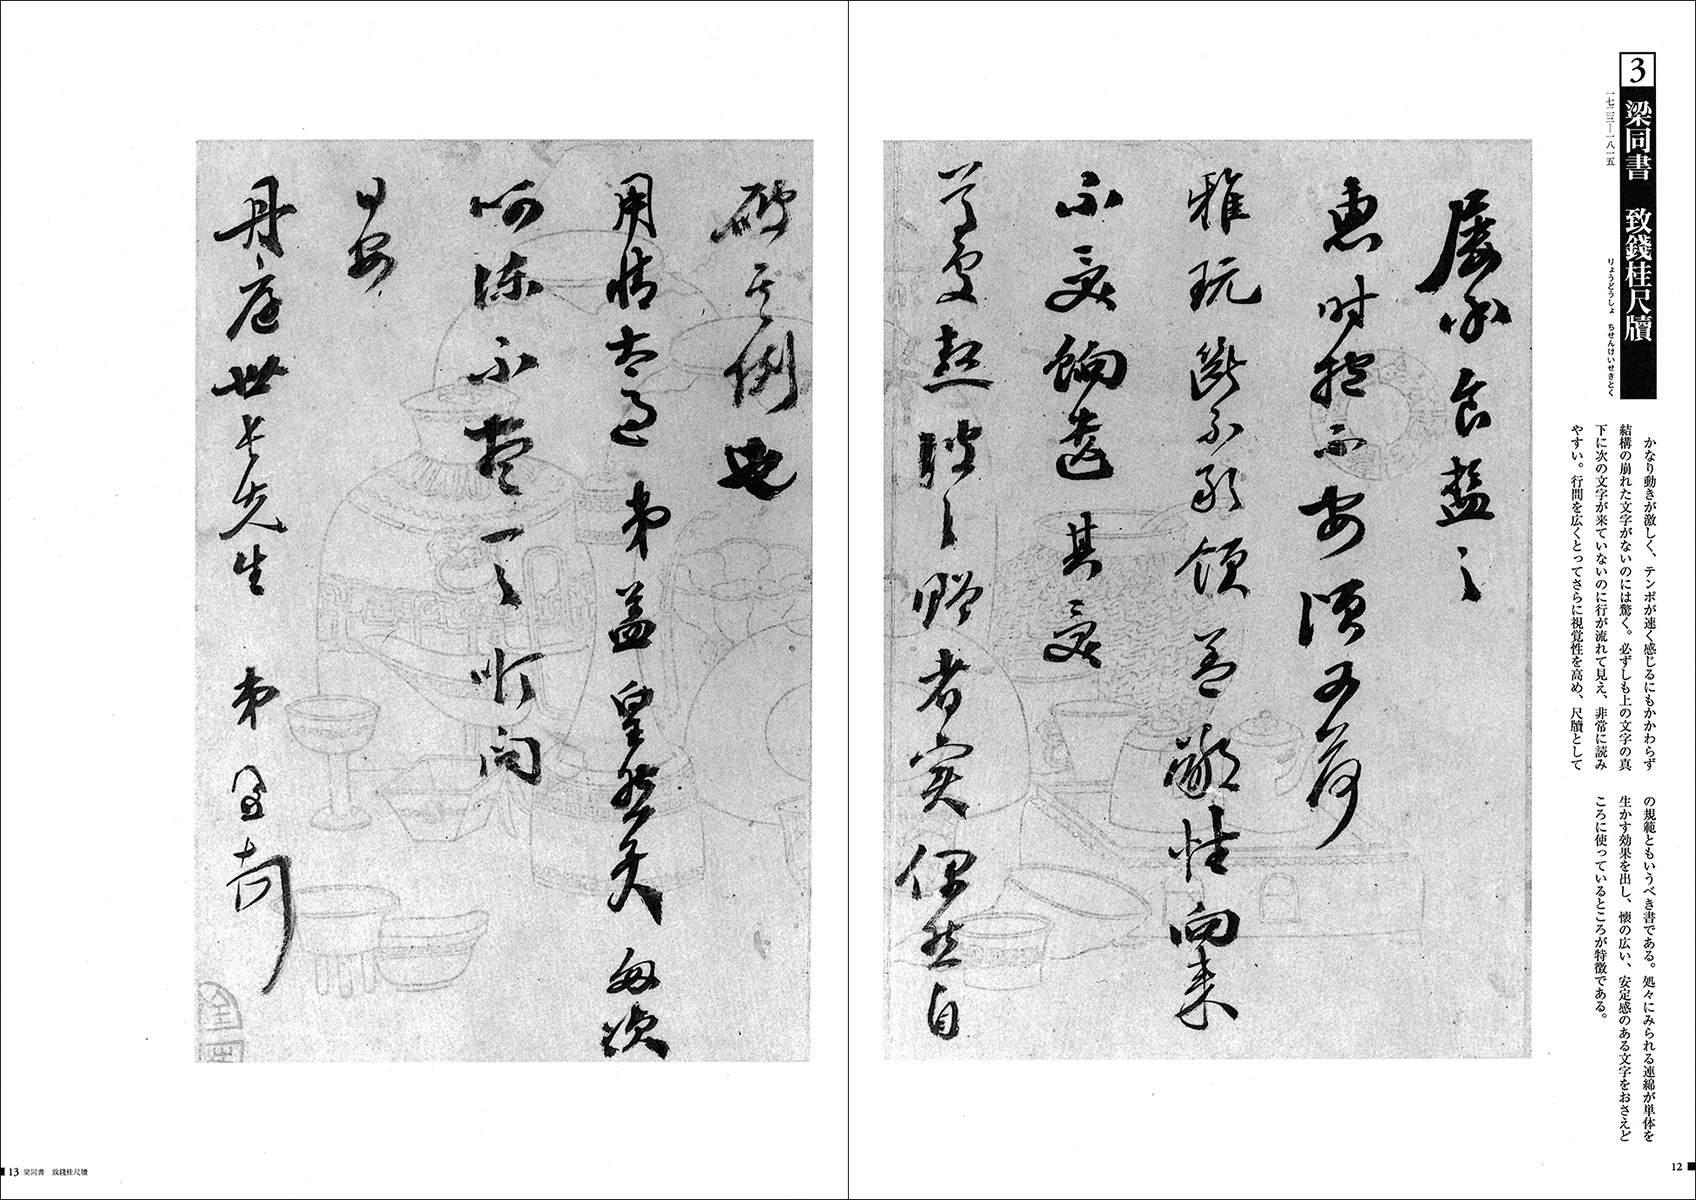 3
梁同書　致錢桂尺牘
一七二三―一八一五
りょうどうしょ　ちせんけいせきとく
かなり動きが激しく、テンポが速く感じるにもかかわらず
結構の崩れた文字がないのには驚く。必ずしも上の文字の真
下に次の文字が来ていないのに行が流れて見え、非常に読み
やすい。行間を広くとってさらに視覚性を高め、尺牘として
の規範ともいうべき書である。処々にみられる連綿が単体を
生かす効果を出し、懐の広い、安定感のある文字をおさえど
ころに使っているところが特徴である。
屡承食
惠時抱不安頃又荷
雅玩斷不敢領 鄙性向来
不受餉遺其受
尊處 贈者実偶然自
破其例也
用情太過弟益皇然矣每次
呵凍不盡一々順問
日安
丹庭世長先生 弟同書
12
13 梁同書　致錢桂尺牘